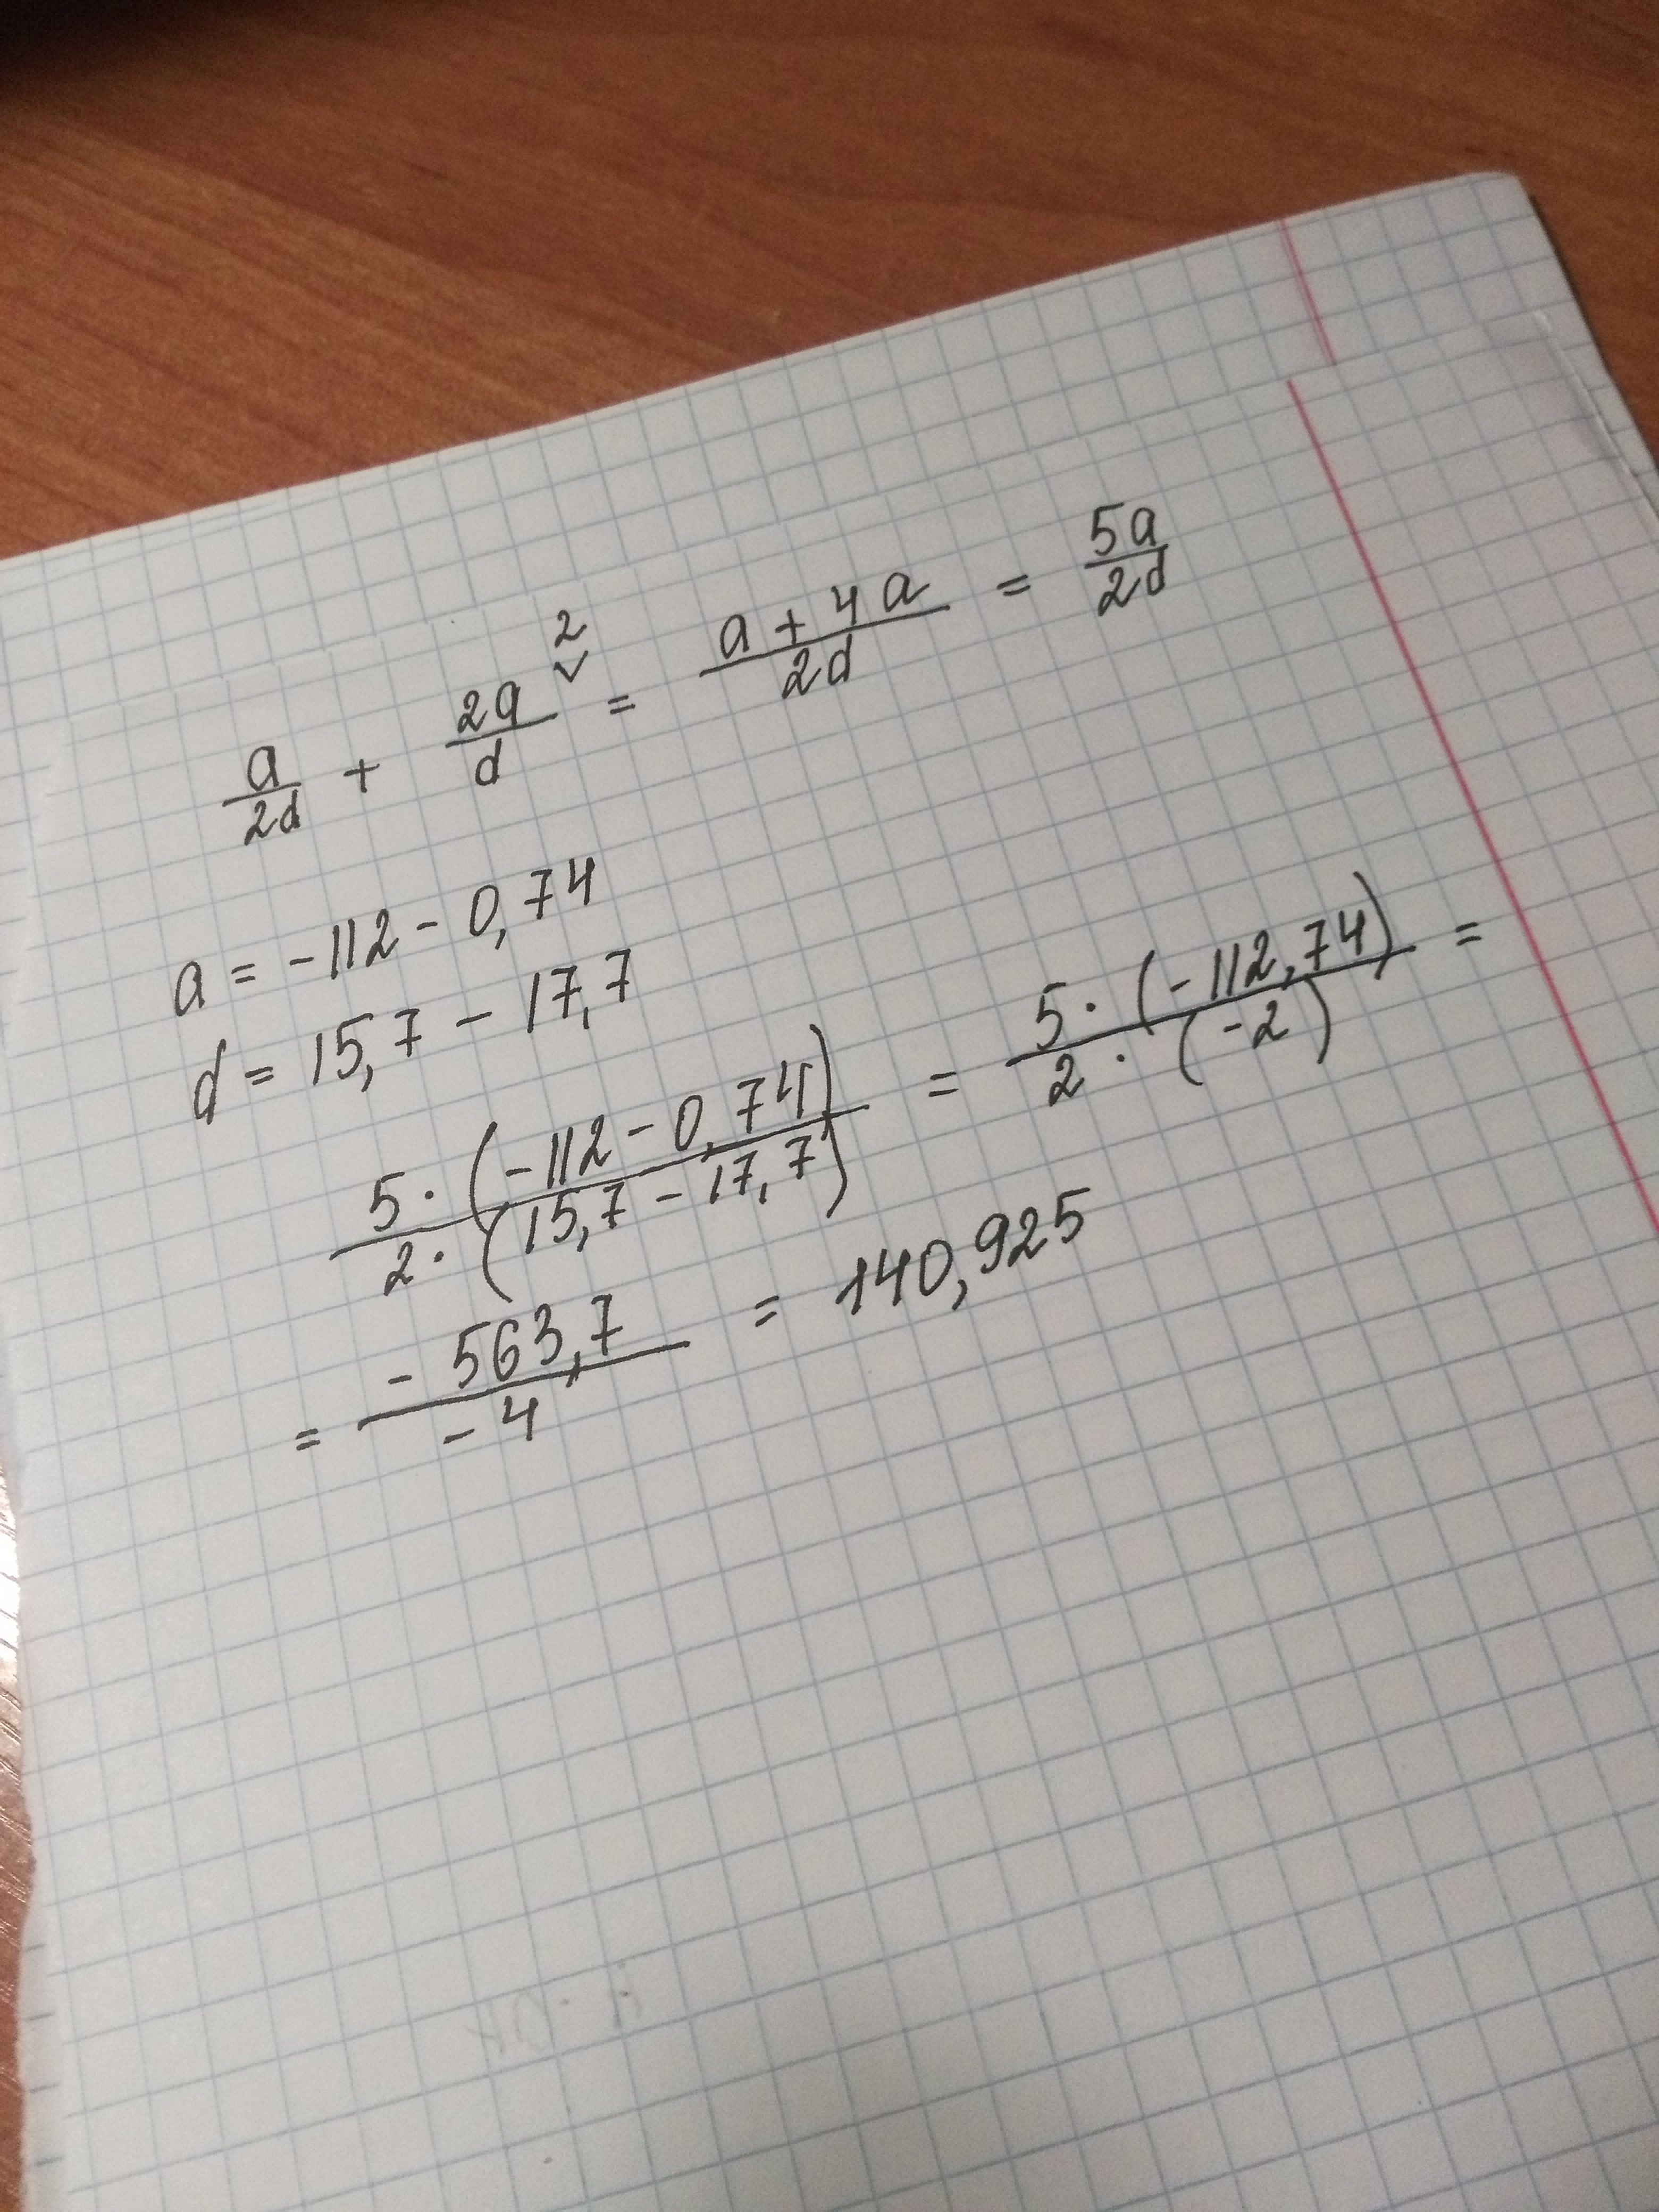 a/2d + 2a/d ² = a + 4a/2d = 5a/2d
a = -112 - 0,74
d = 15,7 - 17,7
5 · (-112 - 0,74)/2 · (15,7 - 17,7) = 5 · (-112,74)/2 · (-2) =
= - 563,7/- 4 = 140,925